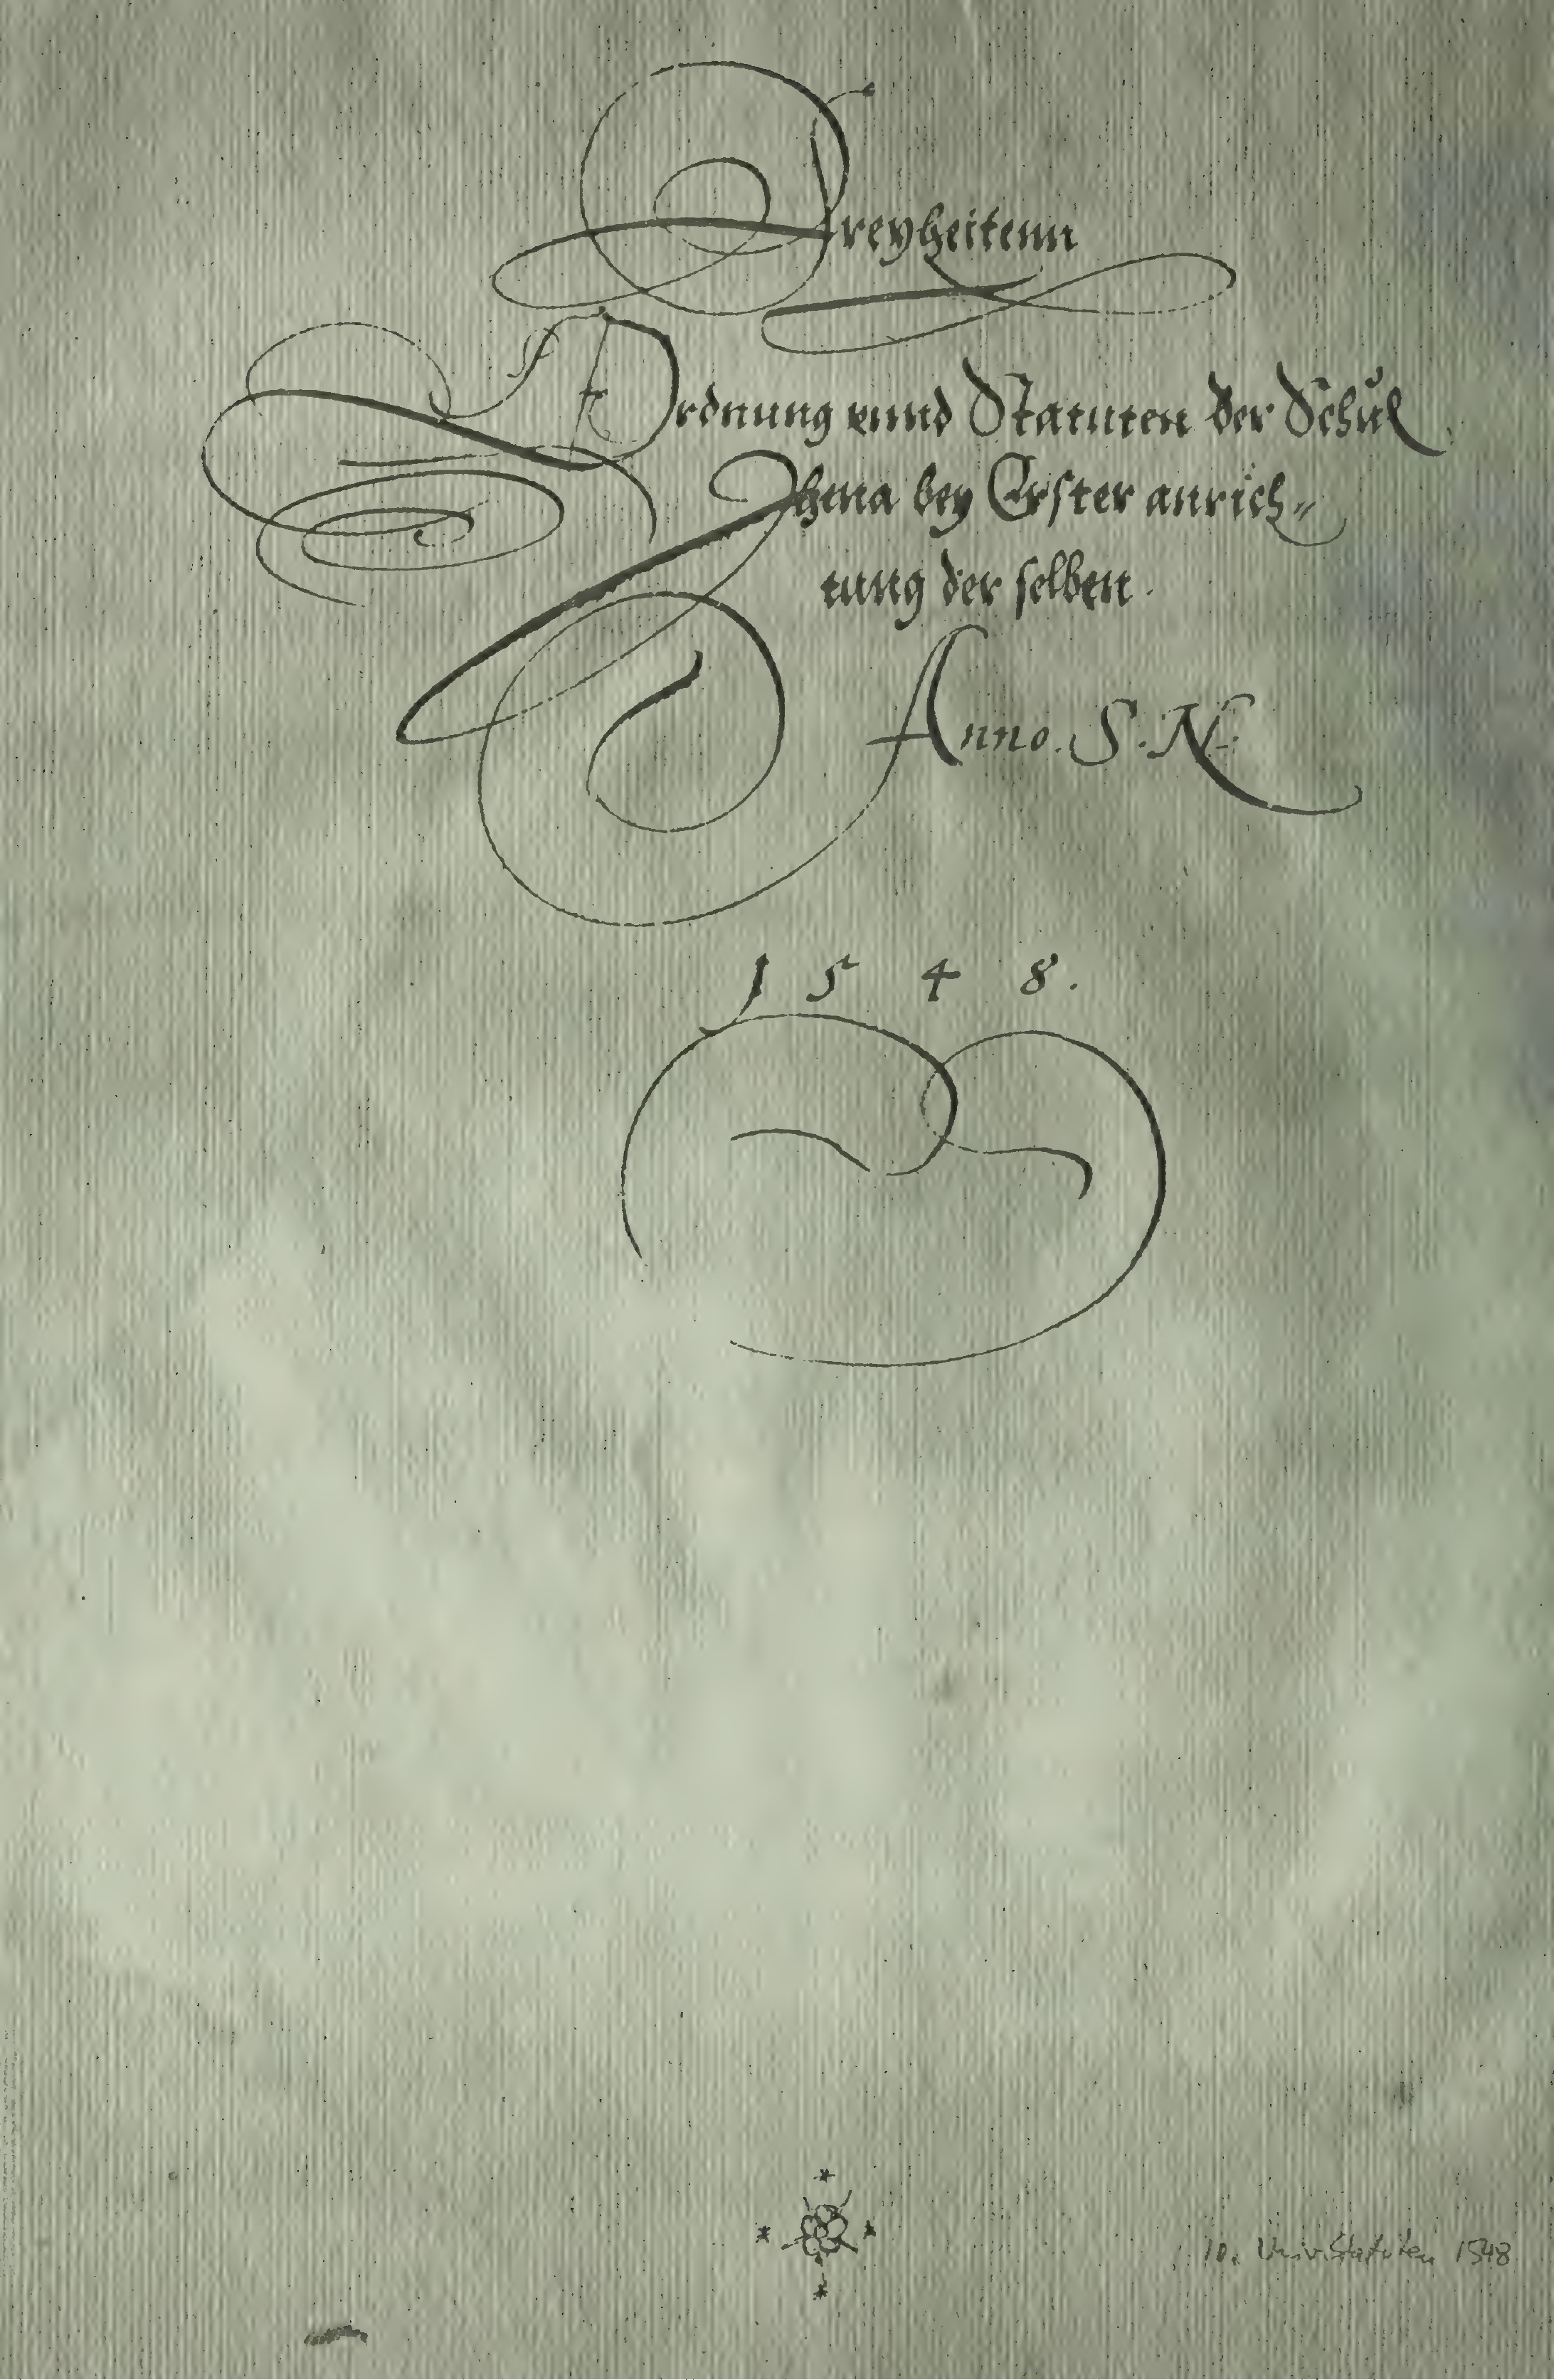 Freyheitenn
Ordnung vnnd Statuten der Schul
Ihena bey Erster anrich-
tung der selben.
Anno. S. N.
1548.
10. Univ. Statuten 1548